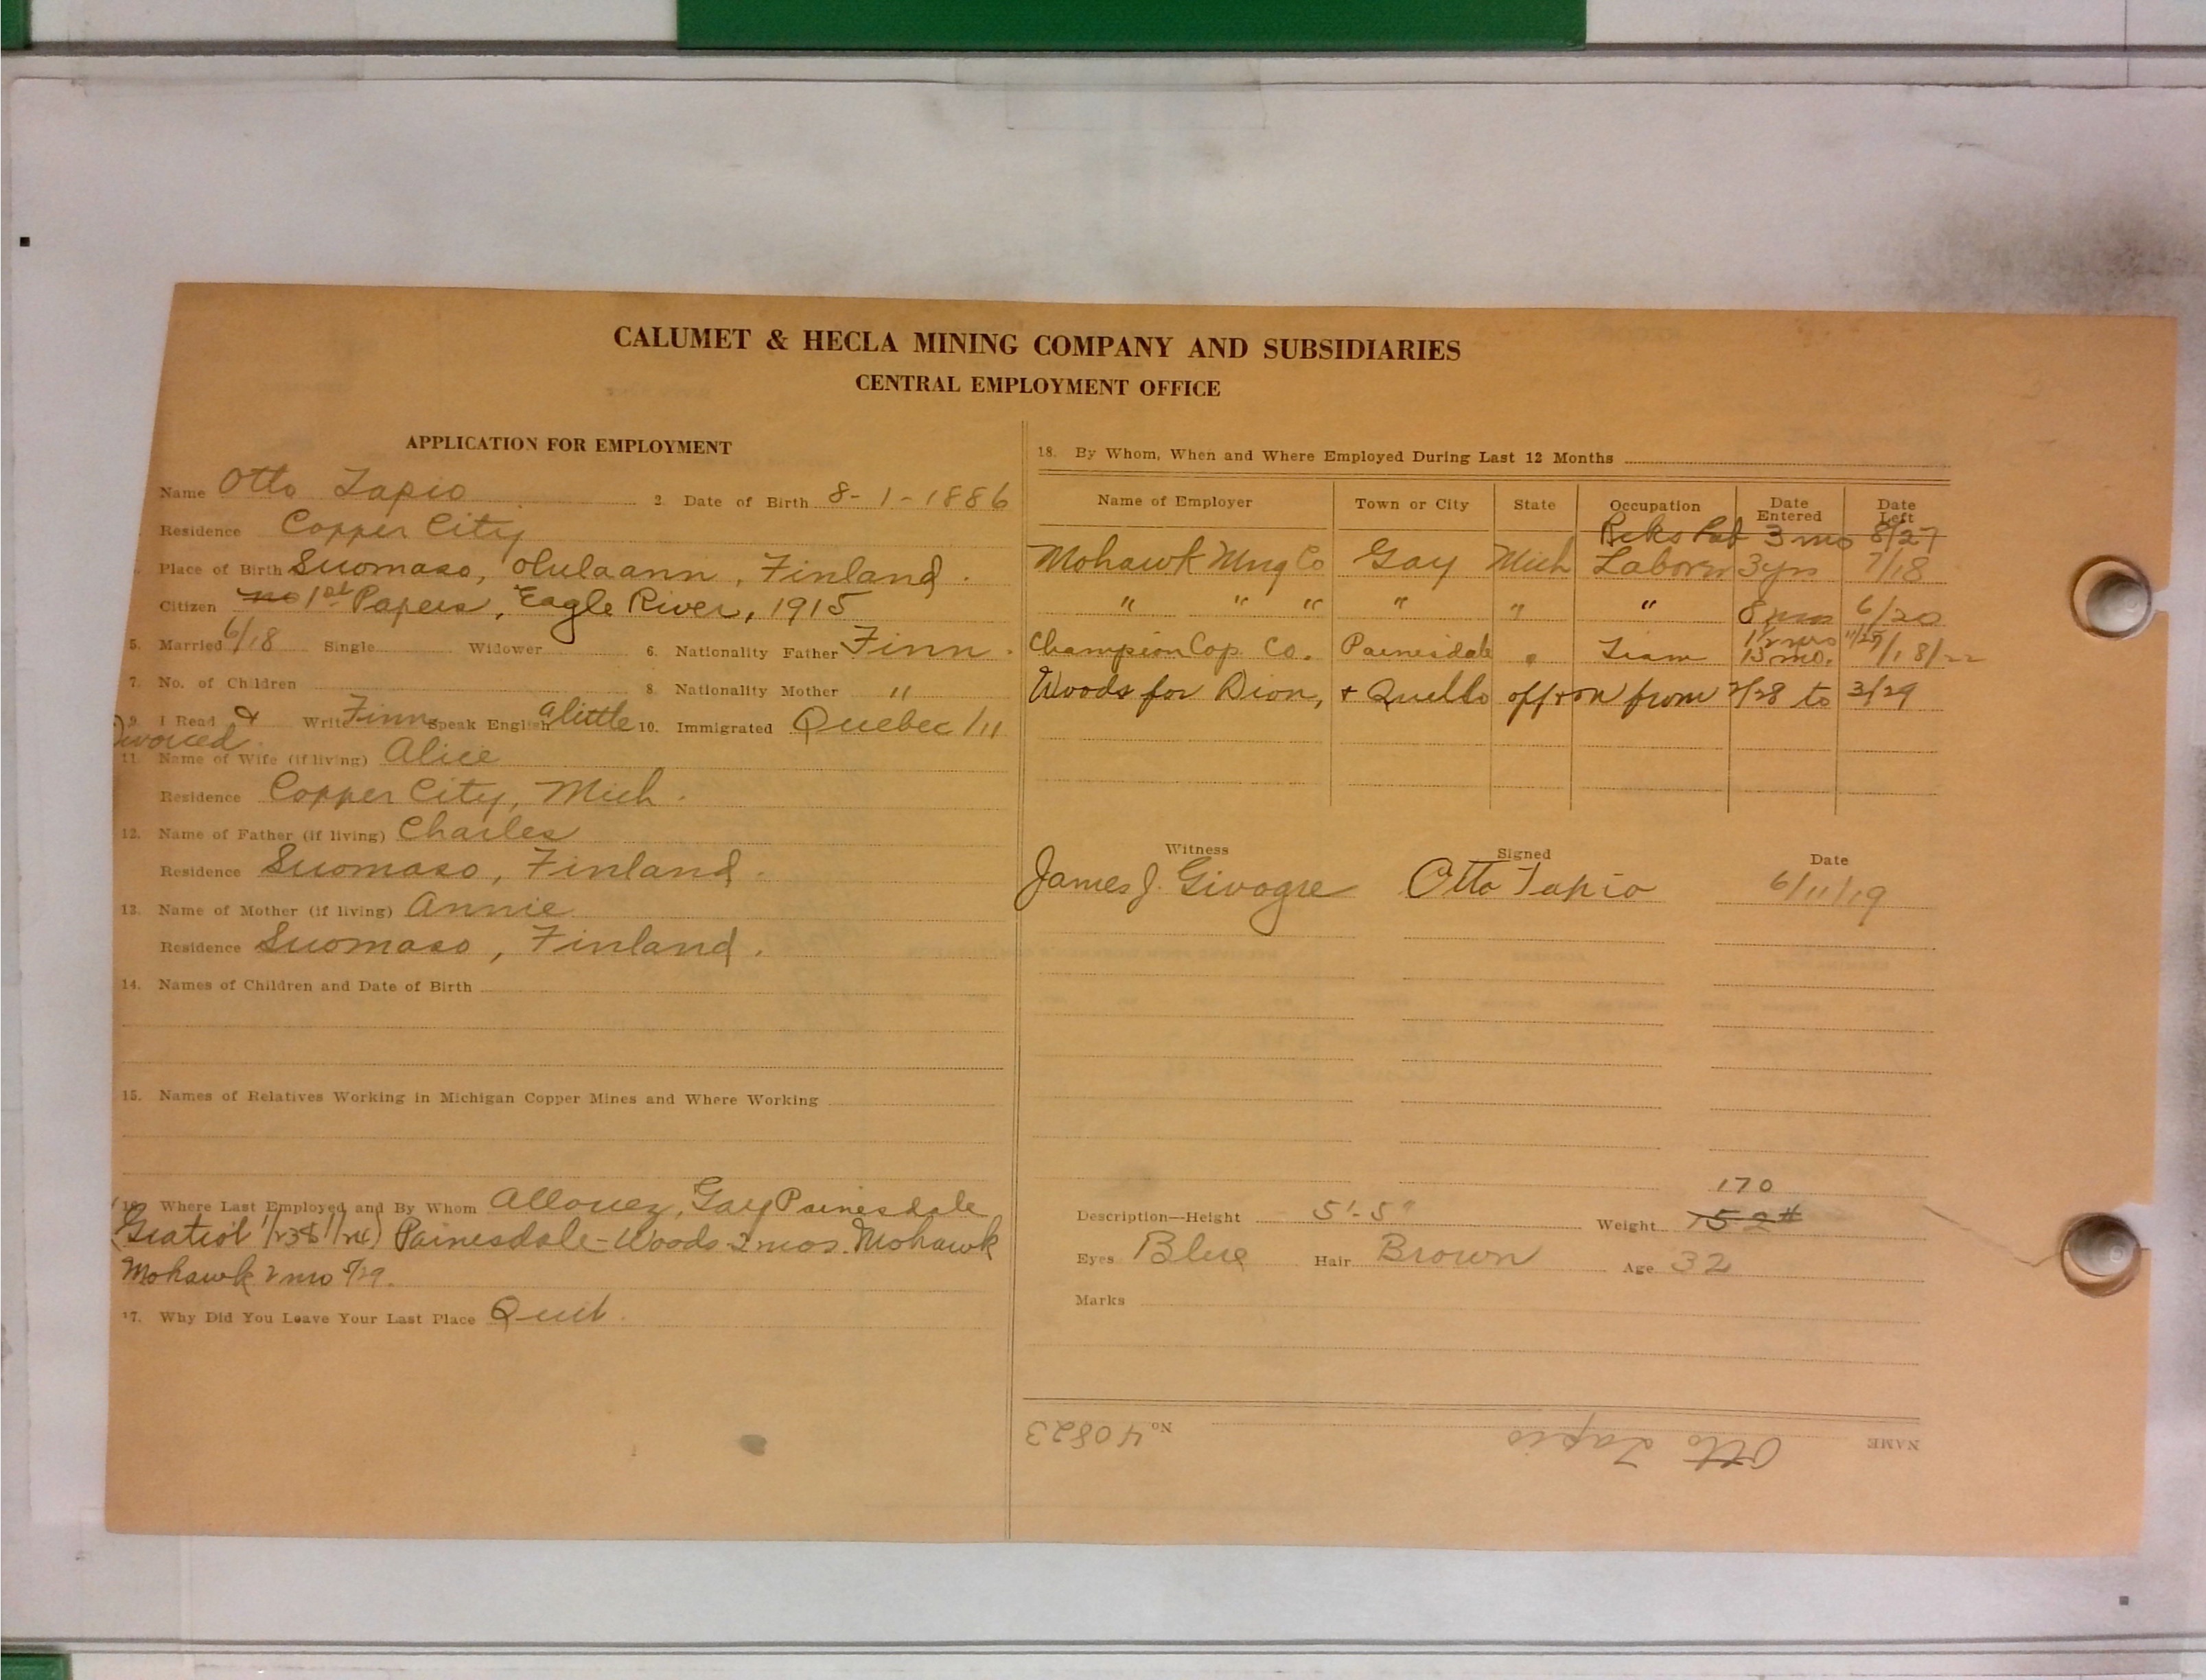 CALUMET & HECLA MINING COMPANY AND SUBSIDIARIES
CENTRAL EMPLOYMENT OFFICE
APPLICATION FOR EMPLOYMENT
Name Otto Tapio 2. Date of Birth 8-1-1886
Residence Copper City
Place of Birth Suomaso, Olulaann, Finland.
Citizen no 1st Papers, Eagle River, 1915
5. Married 6/18 Single Widower 6. Nationality Father Finn.
7. No. of Children 8. Nationality Mother "
9. I Read & Write Finn Speak English a little 10. Immigrated Quebec /11
Divorced
11. Name of Wife (if living) Alice
Residence Copper City, Mich.
12. Name of Father (if living) Charles
Residence Suomaso, Finland.
13. Name of Mother (if living) Annie
Residence Suomaso, Finland.
14. Names of Children and Date of Birth
15. Names of Relatives Working in Michigan Copper Mines and Where Working
16. Where Last Employed and By Whom Allouez, Gay Painesdale
Gratiot Painesdale - Woods 2 mos. Mohawk
Mohawk 2 mo 5/29.
17. Why Did You Leave Your Last Place Quit.
18. By Whom, When and Where Employed During Last 12 Months
Name of Employer Town or City State Occupation Date Entered Date Left
3 mo 8/27
Mohawk Mng Co Gay Mich Laborer 3 yrs 7/18
" " " " " " 6/20
Champion Cop. Co. Painesdale " Tram 13 mo.
Woods for Dion, + Quello off + on from 2/28 to 3/29
Witness Signed Date
James J. Otto Tapio 6/11/19
170
Description—Height 5'-5" Weight 152#
Eyes Blue Hair Brown Age 32
Marks
NAME Otto Tapio No. 40823